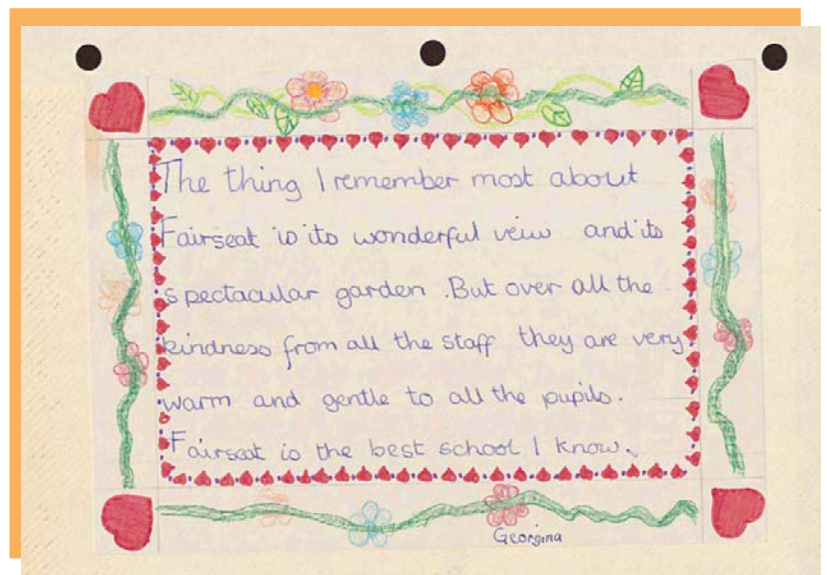 The thing I remember most about
Fairseat is its wonderful veiw and its
spectacular garden. But over all the
kindness from all the staff they are very
warm and gentle to all the pupils.
Fairseat is the best school I know.
Georgina